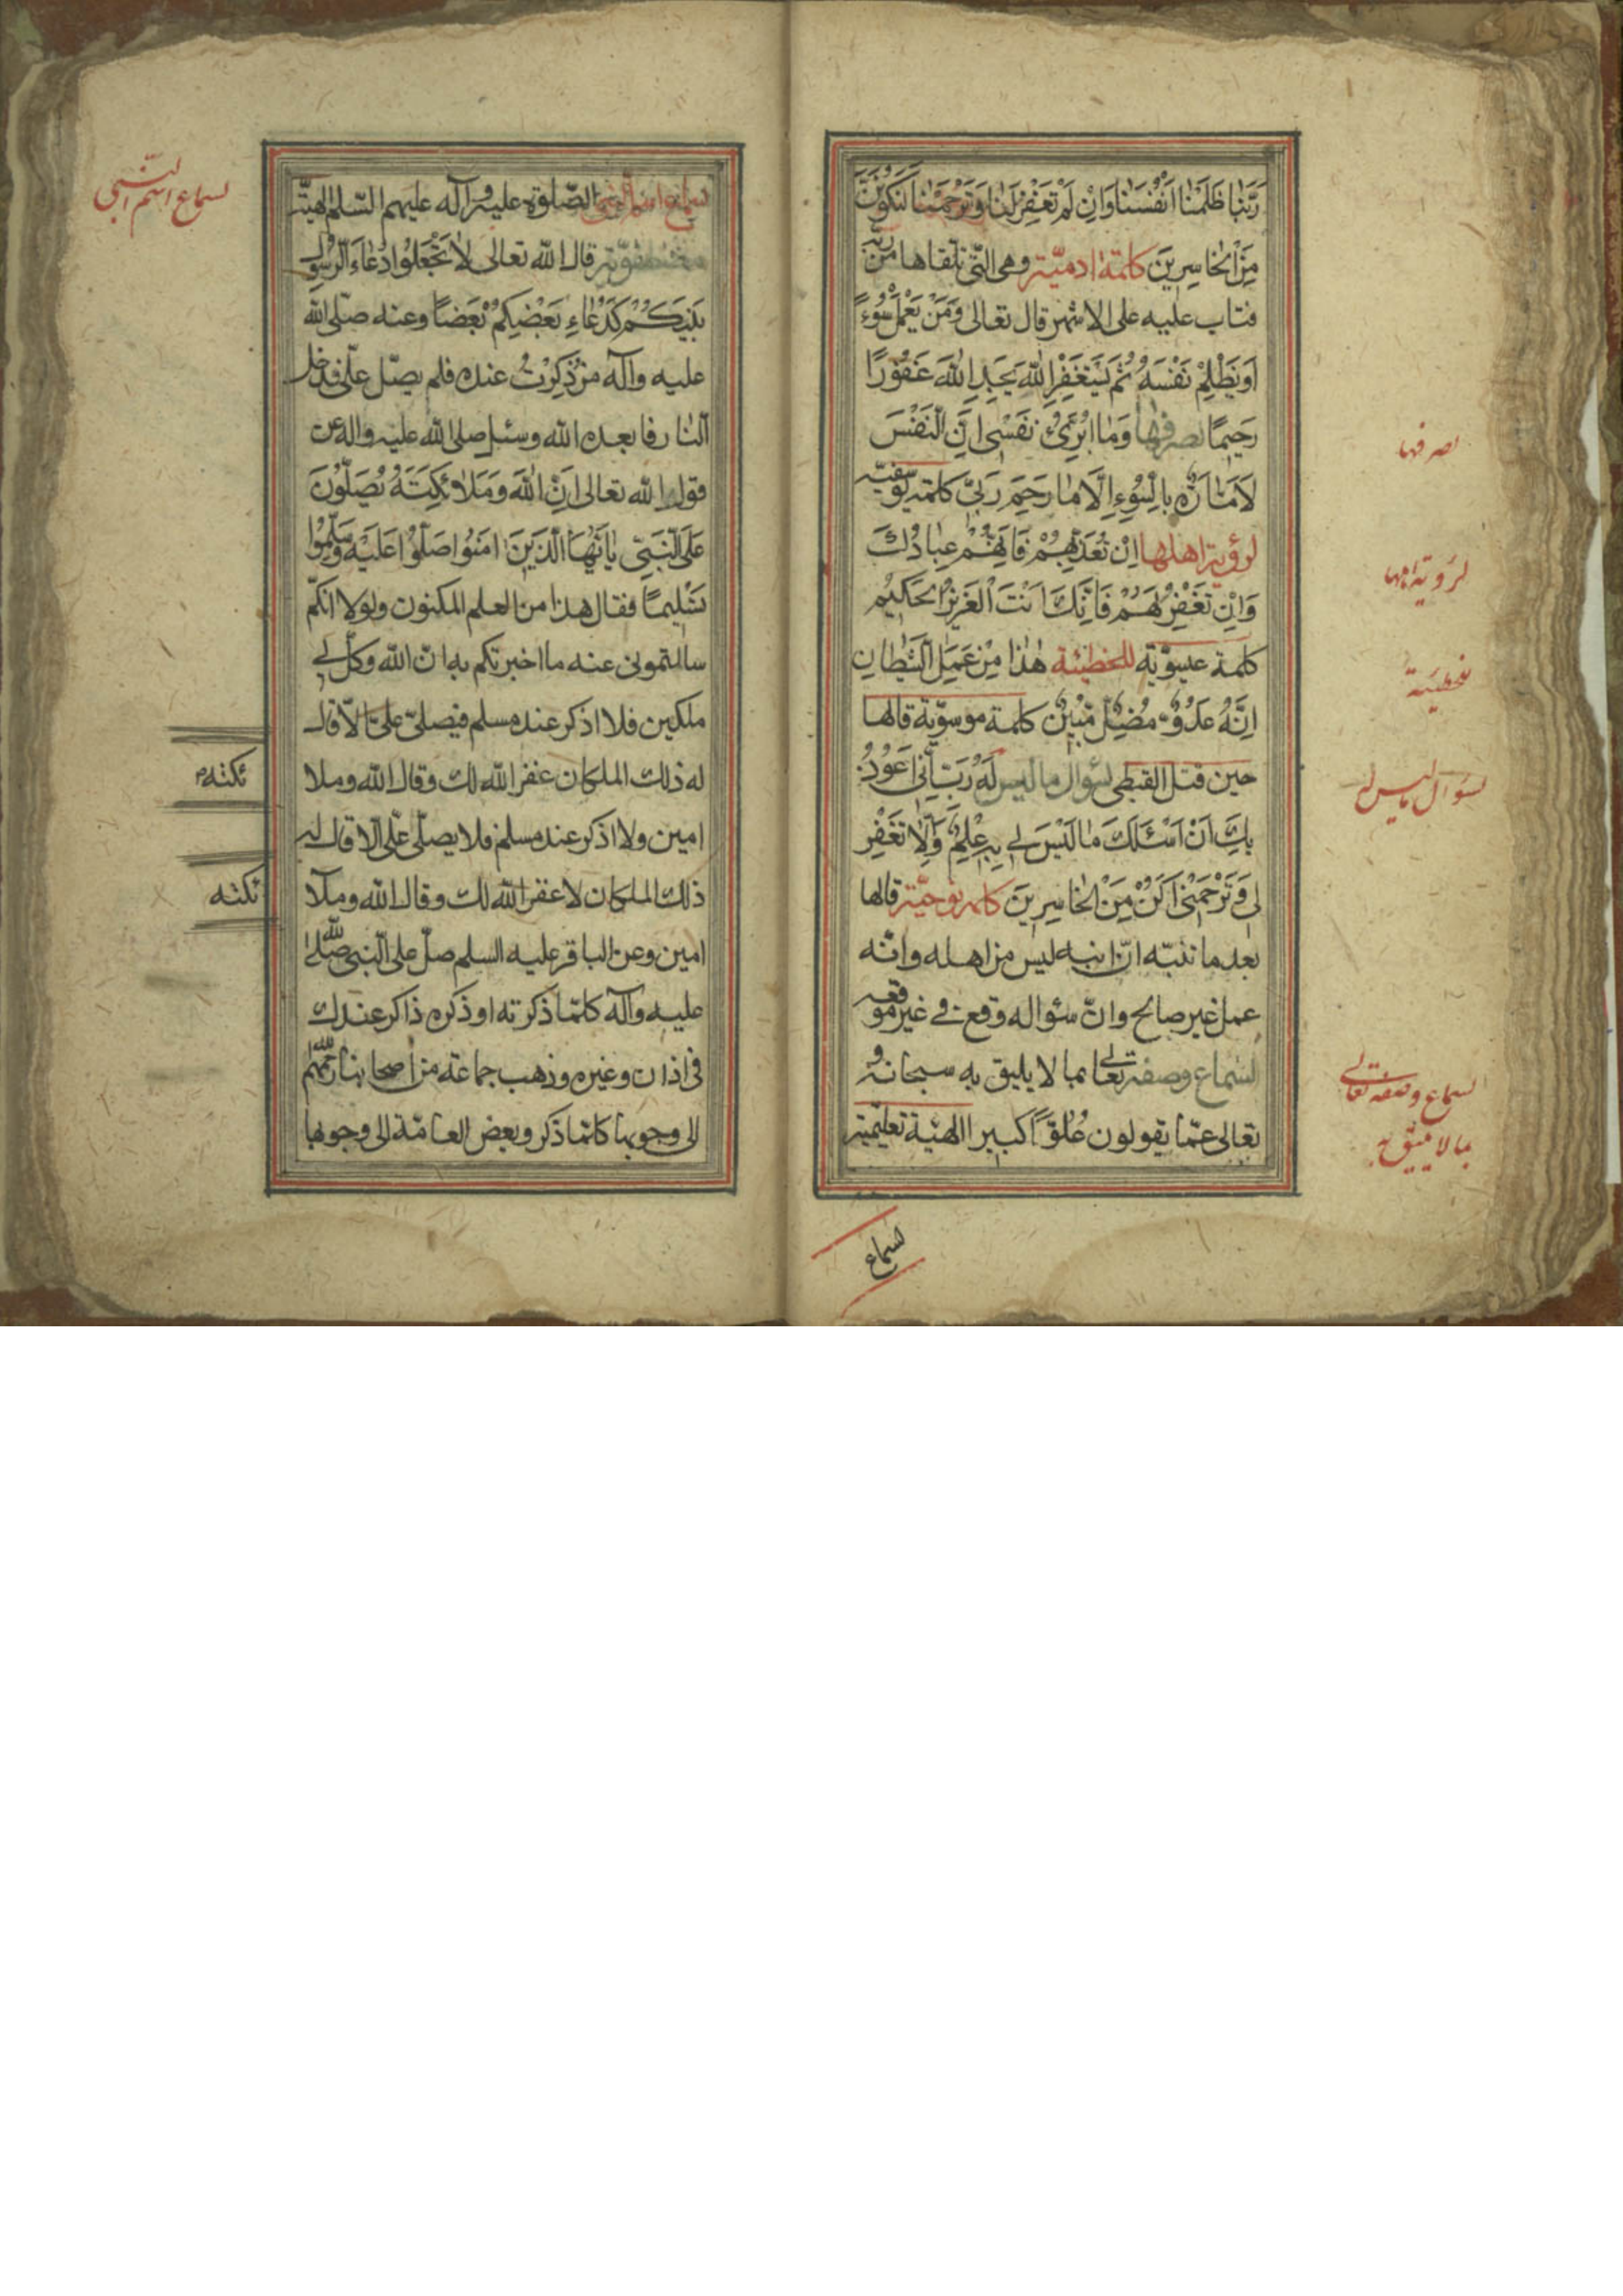 رَبَّنَا ظَلَمْنَا اَنْفُسَنَا وَاِنْ لَمْ تَغْفِرْ لَنَا وَتَرْحَمْنَا لَنَكُونَنَّ
مِنَ الْخَاسِرِينَ كلمة ادميّة وهى التى تلقاها من ربه
فتاب عليه على الاشهر قال تعالى وَمَنْ يَعْمَلْ سُوءً
اَوْ يَظْلِمْ نَفْسَهُ ثُمَّ يَسْتَغْفِرِ اللّٰهَ يَجِدِ اللّٰهَ غَفُورًا
رَحِيمًا لصرفها وَمَا اُبَرِّئُ نَفْسِى اِنَّ النَّفْسَ
لَاَمَّارَةٌ بِالسُّوءِ اِلَّا مَا رَحِمَ رَبِّى كلمة يوسفيّة
لرؤية اهلها اِنْ تُعَذِّبْهُمْ فَاِنَّهُمْ عِبَادُكَ
وَاِنْ تَغْفِرْ لَهُمْ فَاِنَّكَ اَنْتَ الْعَزِيزُ الْحَكِيمُ
كلمة عيسويّة للخطيئة هٰذَا مِنْ عَمَلِ الشَّيْطَانِ
اِنَّهُ عَدُوٌّ مُضِلٌّ مُبِينٌ كلمة موسويّة قالها
حين قتل القبطى لسؤال ما ليس له رَبِّ اِنِّى اَعُوذُ
بِكَ اَنْ اَسْئَلَكَ مَا لَيْسَ لِى بِهِ عِلْمٌ وَاِلَّا تَغْفِرْ
لِى وَتَرْحَمْنِى اَكُنْ مِنَ الْخَاسِرِينَ كلمة نوحيّة قالها
بعد ما تنبّه انّ ابنه ليس من اهله وانّه
عمل غير صالح وانّ سئواله وقع فى غير موقعه
لسماع وصفه تعالى بما لا يليق به سبحانه و
تعالى عمّا يقولون عُلُوًّا كبيرا الهيّة تعليميّة
لسماع
لصرفها
لرؤية اهلها
للخطيئة
لسؤال ما ليس له
لسماع وصفه تعالى
بما لا يليق به
لسماع اسم النبى الصلوة عليه وآله عليهم السلم الهيّة
قال الله تعالى لَا تَجْعَلُوا دُعَاءَ الرَّسُولِ
بَيْنَكُمْ كَدُعَاءِ بَعْضِكُمْ بَعْضًا وعنه صلى الله
عليه وآله من ذُكِرْتُ عنده فلم يصلّ علىّ فدخل
النار فابعده الله وسئل صلى الله عليه واله عن
قول الله تعالى اِنَّ اللّٰهَ وَمَلَائِكَتَهُ يُصَلُّونَ
عَلَى النَّبِىِّ يَا اَيُّهَا الَّذِينَ اٰمَنُوا صَلُّوا عَلَيْهِ وَسَلِّمُوا
تَسْلِيمًا فقال هذا من العلم المكنون ولولا انكم
سالتمونى عنه ما اخبرتكم به ان الله وكل لى
ملكين فلا اذكر عند مسلم فيصلّى علىّ الّا قال
له ذلك الملكان غفر الله لك وقال الله وملا
ئكته
امين ولا اذكر عند مسلم فلا يصلّى علىّ الّا قال له
ذلك الملكان لا غفر الله لك وقال الله وملا
ئكته
امين وعن الباقر عليه السلم صلّ على النبى صلى الله
عليه وآله كلّما ذكرته او ذكره ذاكر عندك
فى اذان وغيره وذهب جماعة من اصحابنا رحمهم الله
الى وجوبها كلّما ذكر وبعض العامّة الى وجوبها
لسماع اسم النبى